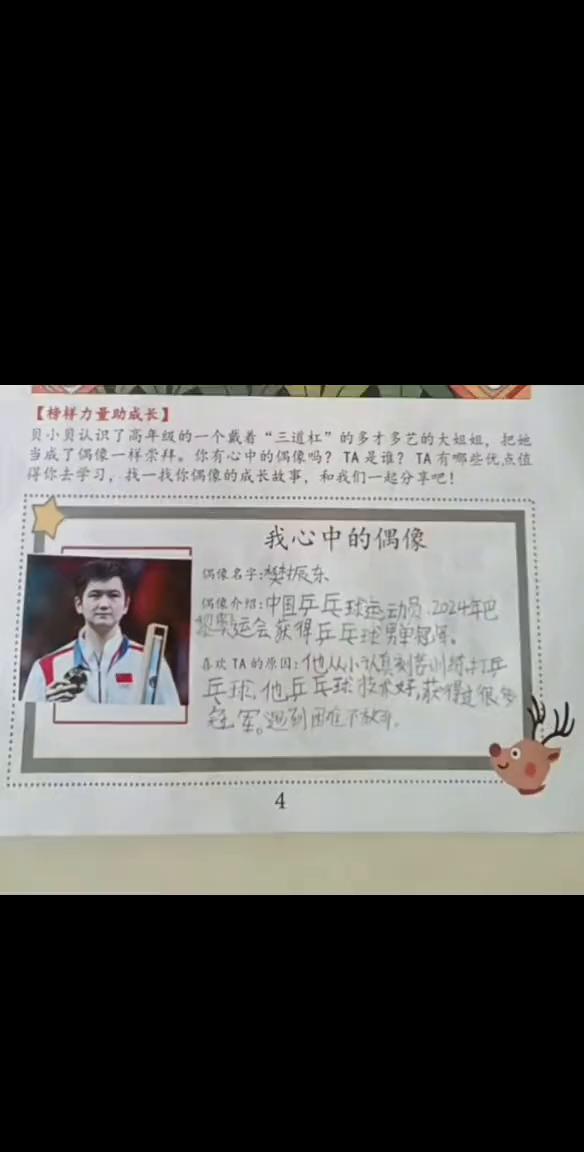 【榜样力量助成长】
贝小贝认识了高年级的一个戴着“三道杠”的多才多艺的大姐姐，把她
当成了偶像一样崇拜。你有心中的偶像吗？TA 是谁？TA 有哪些优点值
得你去学习，找一找你偶像的成长故事，和我们一起分享吧！
我心中的偶像
偶像名字:樊振东
偶像介绍:中国乒乓球运动员.2024年巴
黎奥运会获得乒乓球男单冠军。
喜欢 TA 的原因:他从小认真刻苦训练打乒
乓球,他乒乓球技术好,获得过很多
冠军。遇到困难不放弃.
4